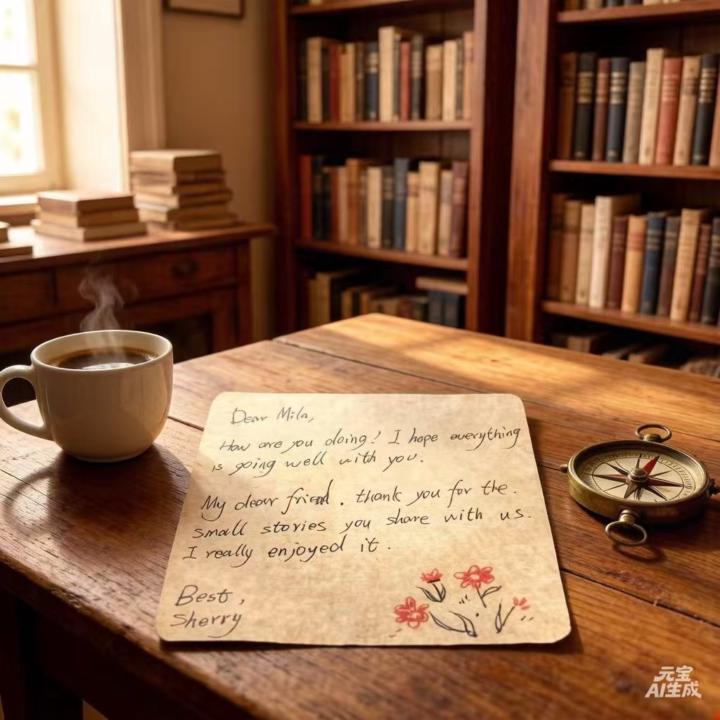 Dear Mila,
How are you doing! I hope everything
is going well with you.
My dear friend. thank you for the.
small stories you share with us.
I really enjoyed it.
Best,
Sherry
元宝
AI生成